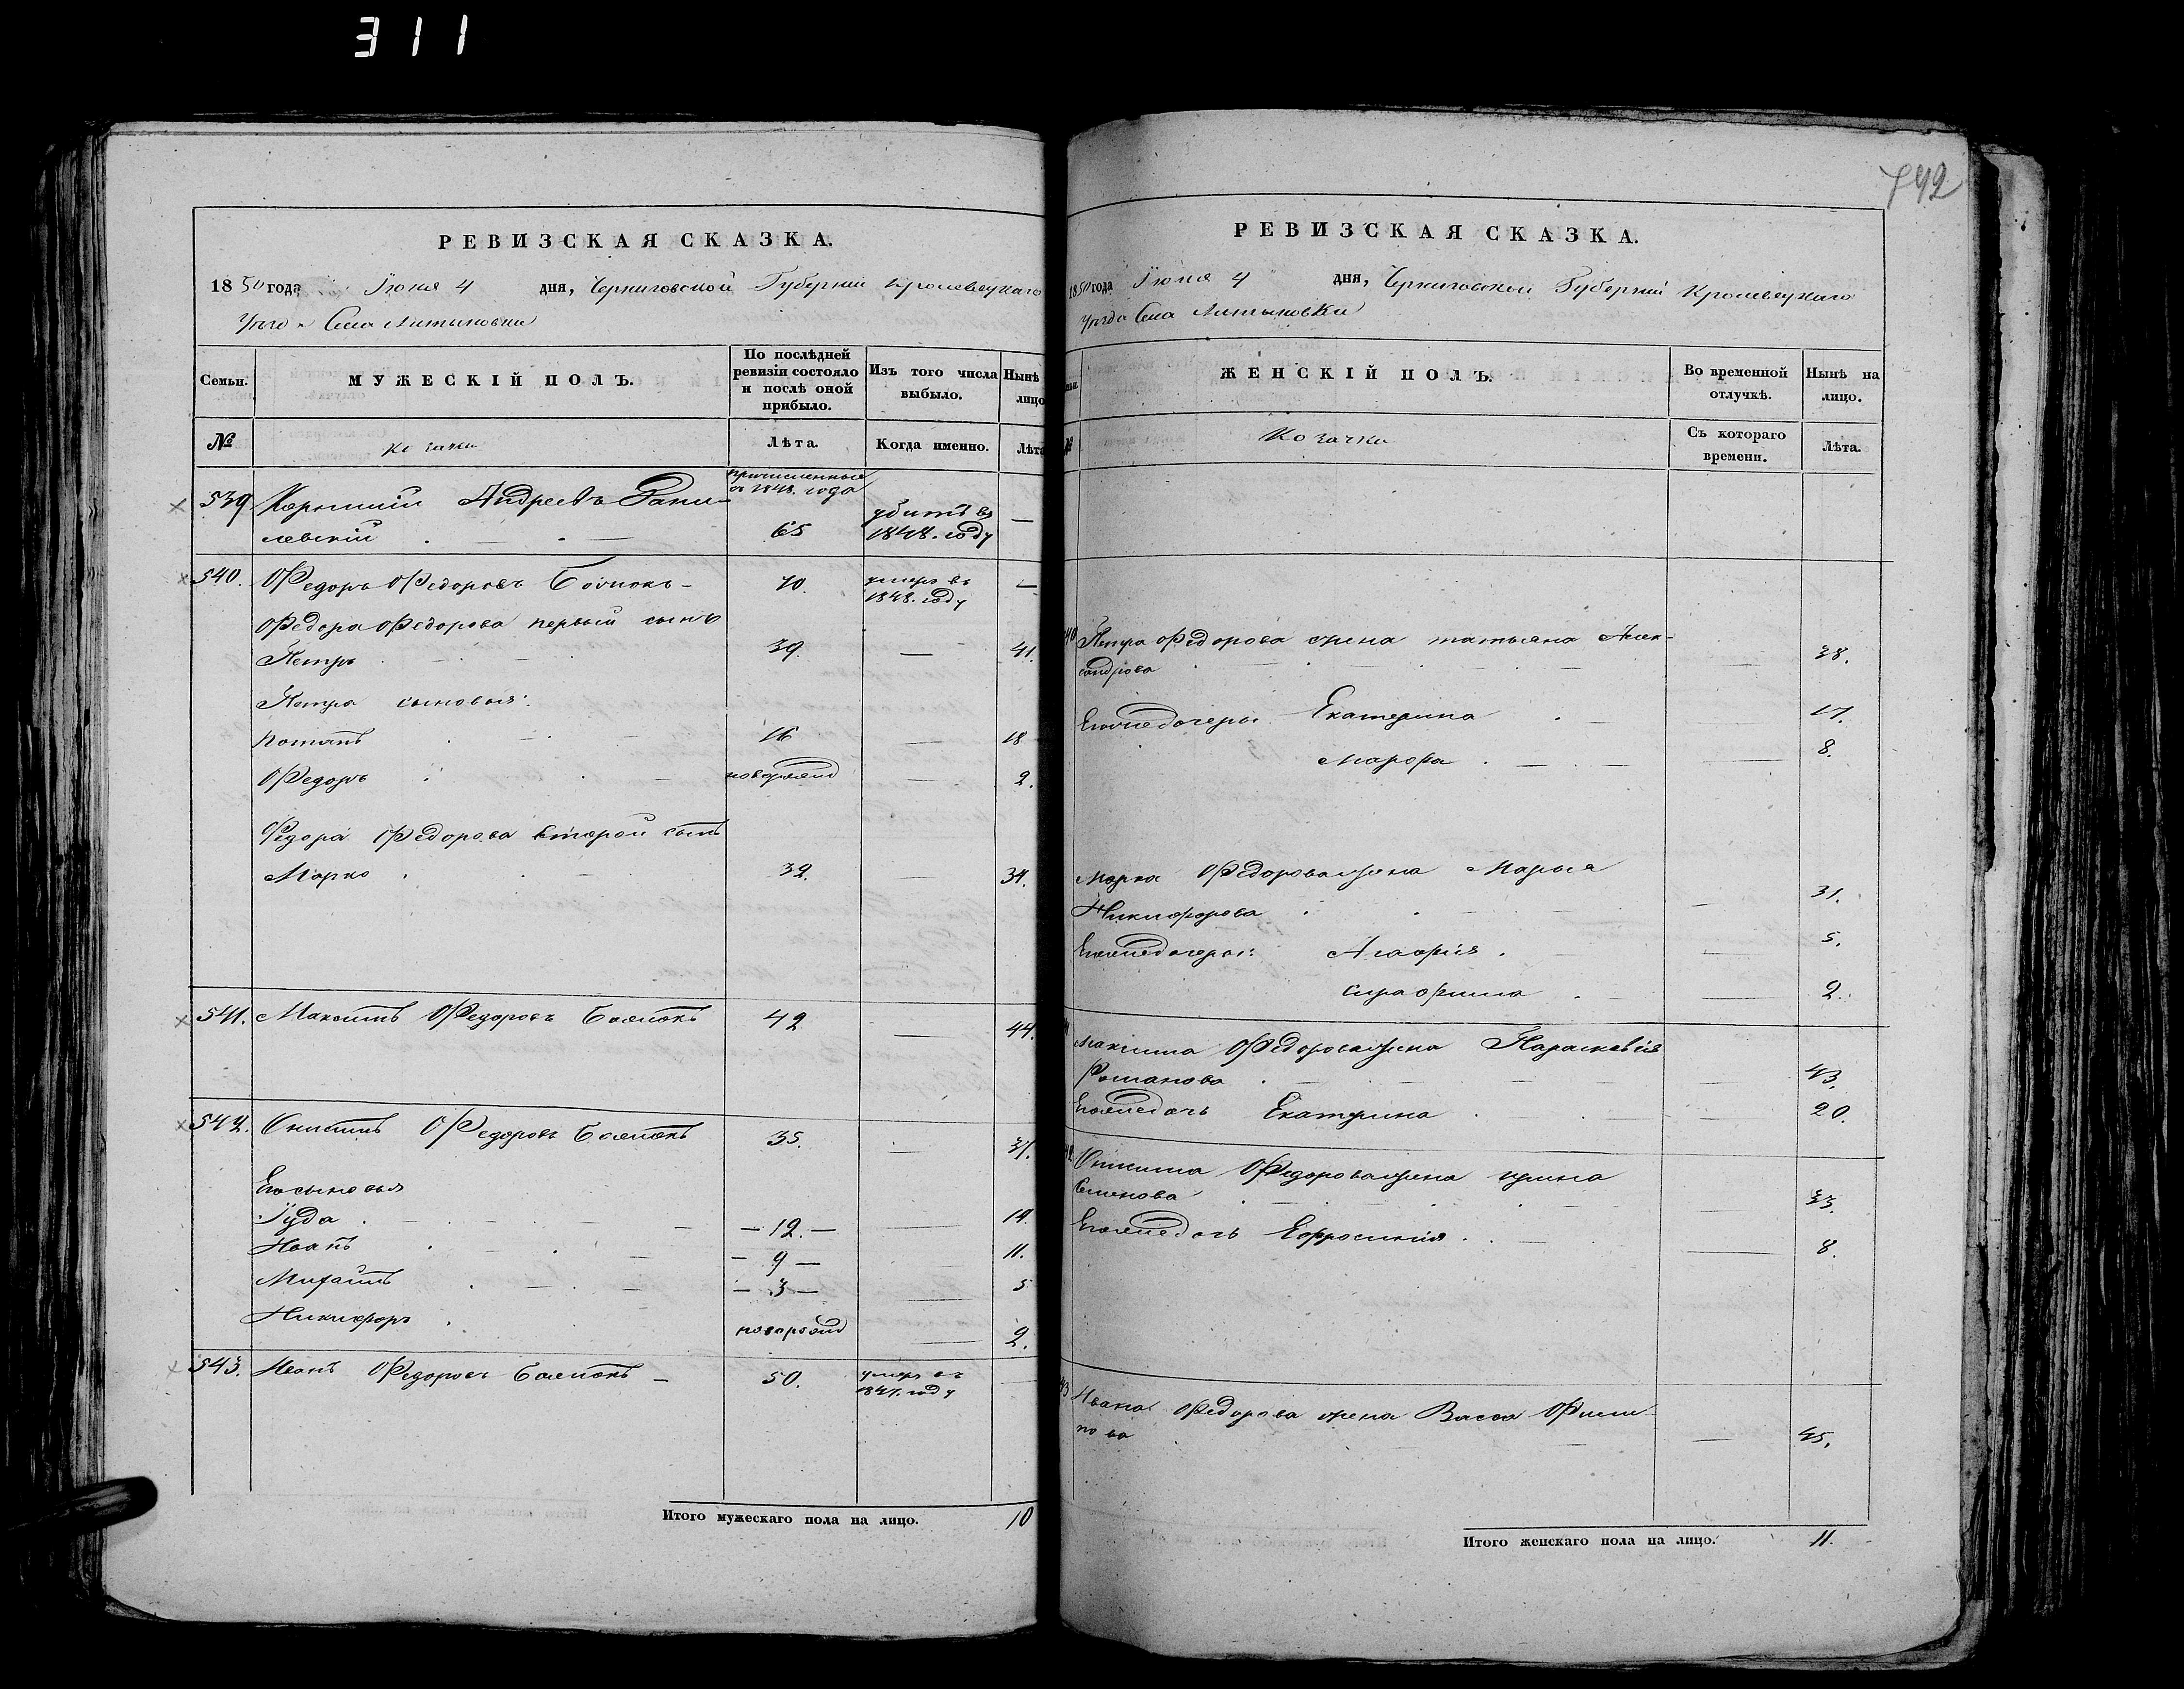 311
742
РЕВИЗСКАЯ СКАЗКА.
1850 года Іюня 4 дня, Черниговской Губерніи Кролевецкаго
Уѣзда Села Литвиновки
Семьи.
МУЖЕСКІЙ ПОЛЪ.
По послѣдней ревизіи состояло и послѣ оной прибыло.
Изъ того числа выбыло.
Нынѣ лицо
№
Козачки
Лѣта.
Когда именно.
Лѣта
539
Андреевъ
причисленные съ 1848. года
65
убитъ въ 1848. году
—
левскій
540.
Федоръ Федоровъ
70.
умеръ въ 1848. году
—
Федора Федорова первый сынъ
Петръ
39.
—
41.
Петра сыновья:
Потапъ
16
—
18
Федоръ
новорожд
—
2.
Федора Федорова второй сынъ
Марко
32.
—
34.
541.
Максимъ Федоровъ
42
—
44.
542.
Онисимъ Федоровъ
35.
37.
Его сыновья
Іуда
— 12. —
14.
Иванъ
— 9 —
11.
Михаилъ
— 3 —
5
Никифоръ
новорожд
2.
543.
Иванъ Федоровъ
50.
умеръ въ 1847. году
Итого мужескаго пола на лицо.
10
РЕВИЗСКАЯ СКАЗКА.
1850 года Іюня 4 дня, Черниговской Губерніи Кролевецкаго
Уѣзда Села Литвиновки
ЖЕНСКІЙ ПОЛЪ.
Во временной отлучкѣ.
Нынѣ на лицо.
№
Козачки
Съ котораго времени.
Лѣта.
Петра Федорова жена Татьяна Алек-
сандрова
—
38.
Его же дочеры Екатерина
—
17.
Марфа
—
8.
Марка Федорова жена Марья
Никифорова
—
31.
Его же дочеры: Агафія
—
5.
—
2.
Максима Федорова жена Параскевія
Романова
—
43.
Его же дочь Екатерина
—
20.
Онисима Федорова жена Ирина
Семенова
—
33.
Его же дочь Ефросинія
—
8.
Ивана Федорова жена Васса Фили-
пова
—
45.
Итого женскаго пола на лицо.
11.